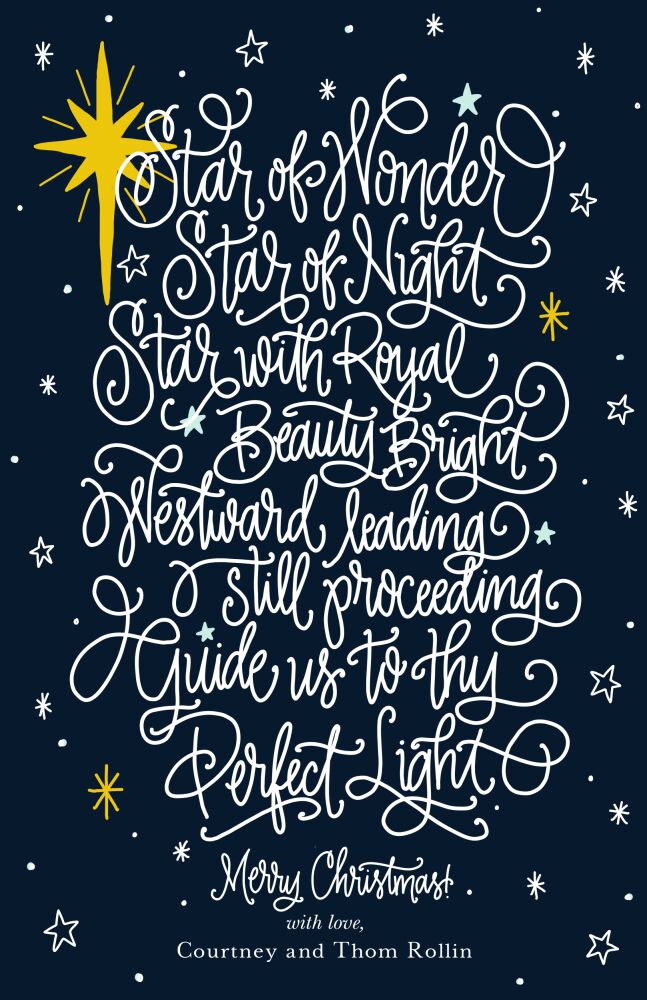 Star of Wonder
Star of Night
Star with Royal
Beauty Bright
Westward leading
still proceeding
Guide us to thy
Perfect Light
Merry Christmas!
with love,
Courtney and Thom Rollin